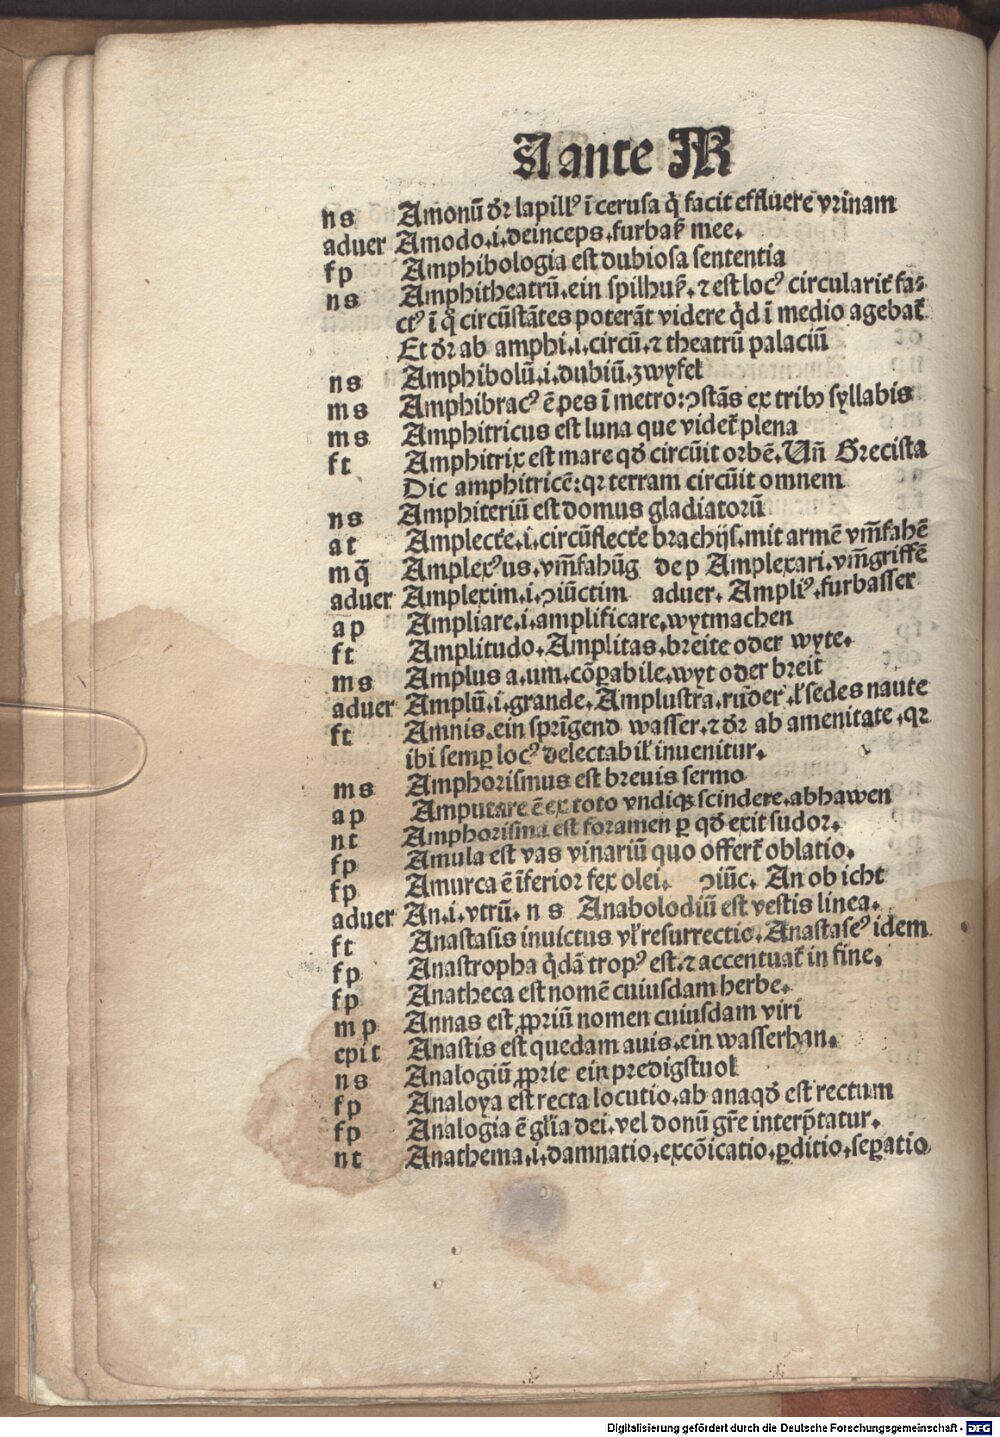 A ante M
n s Amonū dr̄ lapill⁹ ī cerusa q̄ facit effluere vrinam
aduer Amodo.i.deinceps.furbaß mee.
f p Amphibologia est dubiosa sententia
n s Amphitheatrū.ein spilhuß.⁊ est loc⁹ circularit̄ fa⸗
ct⁹ ī q̄ circūstātes poterāt videre qd̄ ī medio agebat̄
Et dr̄ ab amphi.i.circū.⁊ theatrū palaciū
n s Amphibolū.i.dubiū.zwyfel
m s Amphibrac⁹ ē pes ī metro:ꝯstās ex tribꝰ syllabis
m s Amphitricus est luna que videt̄ plena
f t Amphitrix est mare qd̄ circūit orbē.Un̄ Grecista
Dic amphitricē:qꝛ terram circūit omnem
n s Amphiteriū est domus gladiatorū
a t Amplecte.i.circūflecte brachijs.mit armē vm̄fahē
m q̄ Amplex⁹us.vm̄fahūg de p Amplexari.vm̄griffē
aduer Amplexim.i.ꝯiūctim aduer. Ampli⁹.furbasser
a p Ampliare.i.amplificare.wytmachen
f t Amplitudo.Amplitas.breite oder wyte.
m s Amplus a.um.cōꝑabile.wyt oder breit
aduer Amplū.i.grande.Amplustra.rūder.ł sedes naute
f t Amnis.ein sprīgend wasser.⁊ dr̄ ab amenitate.qꝛ
ibi semꝑ loc⁹ delectabił inuenitur.
m s Amphorismus est breuis sermo
a p Amputare ē ex toto vndiqꝫ scindere.abhawen
n t Amphorisma est foramen ꝑ qd̄ exit sudor.
f p Amula est vas vinariū quo offert̄ oblatio.
f p Amurca ē īferior fex olei. ꝯiūc. An ob icht
aduer An.i.vtrū. n s Anabolodiū est vestis linea.
f t Anastasis inuictus vł resurrectio.Anastase⁹ idem
f p Anastropha q̄dā trop⁹ est.⁊ accentuat̄ in fine.
f p Anatheca est nomē cuiusdam herbe.
m p Annas est ꝓpriū nomen cuiusdam viri
epi t Anastis est quedam auis.ein wasserhan.
n s Analogiū ꝓprie ein predigstuol
f p Analoya est recta locutio.ab ana qd̄ est rectum
f p Analogia ē gl̄ia dei.vel donū gr̄e interp̄tatur.
n t Anathema.i.damnatio.excōicatio.ꝑditio.seꝑatio
Digitalisierung gefördert durch die Deutsche Forschungsgemeinschaft - DFG